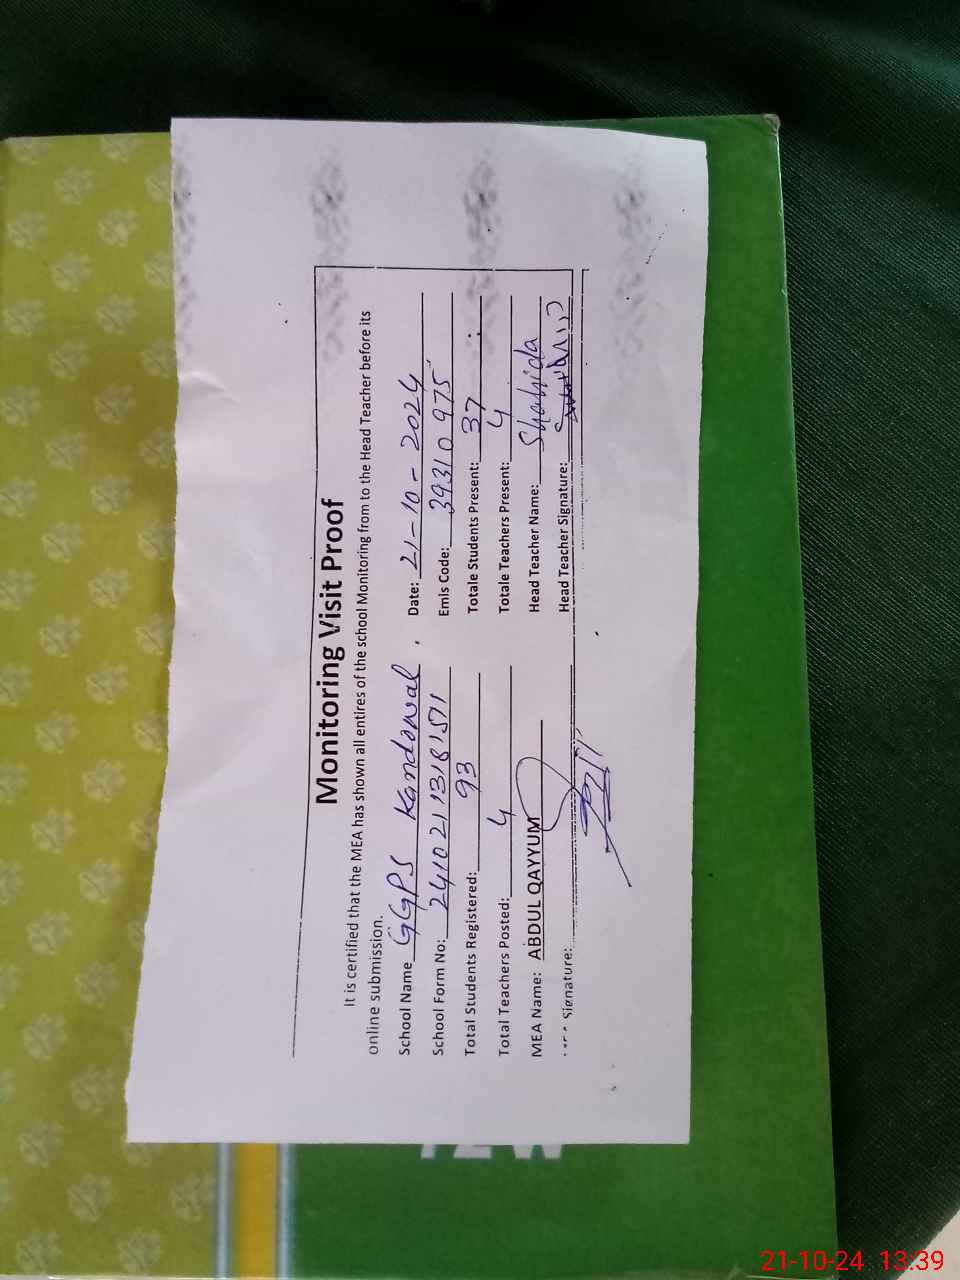 Monitoring Visit Proof
It is certified that the MEA has shown all entires of the school Monitoring from to the Head Teacher before its
online submission.
School Name GGPS Kandowal. Date: 21-10-2024
School Form No: 24102113181571 Emls Code: 39310975
Total Students Registered: 93 Totale Students Present: 37
Total Teachers Posted: 4 Totale Teachers Present: 4
MEA Name: ABDUL QAYYUM Head Teacher Name: Shahida
Signature: Head Teacher Signature:
21-10-24 13:39